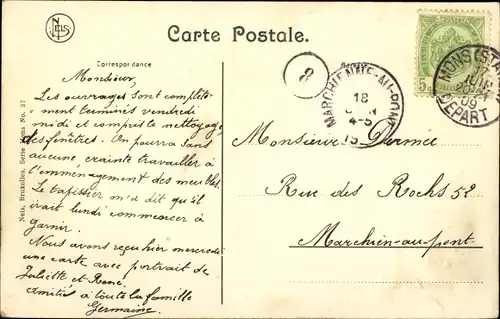 NELS
Carte Postale.
Correspondance
Monsieur,
Les ouvrages sont complète-
ment terminés vendredi
midi et compris le nettoyage
des fenêtres. On pourra sans
aucune, crainte travailler à
l'emménagement des meubles.
Le tapissier m'a dit qu'il
irait lundi commencer à
garnir.
Nous avons reçu hier mercredi
une carte avec portrait de
Juliette et René.
Amitiés à toute la famille
Germaine.
Nels, Bruxelles, Serie Mons No. 37
MARCHIENNE-AU-PONT
18
4-5
MONS (STA
09
DEPART
5
Monsieur
Rue des Rochs 52
Marchien-au-pont